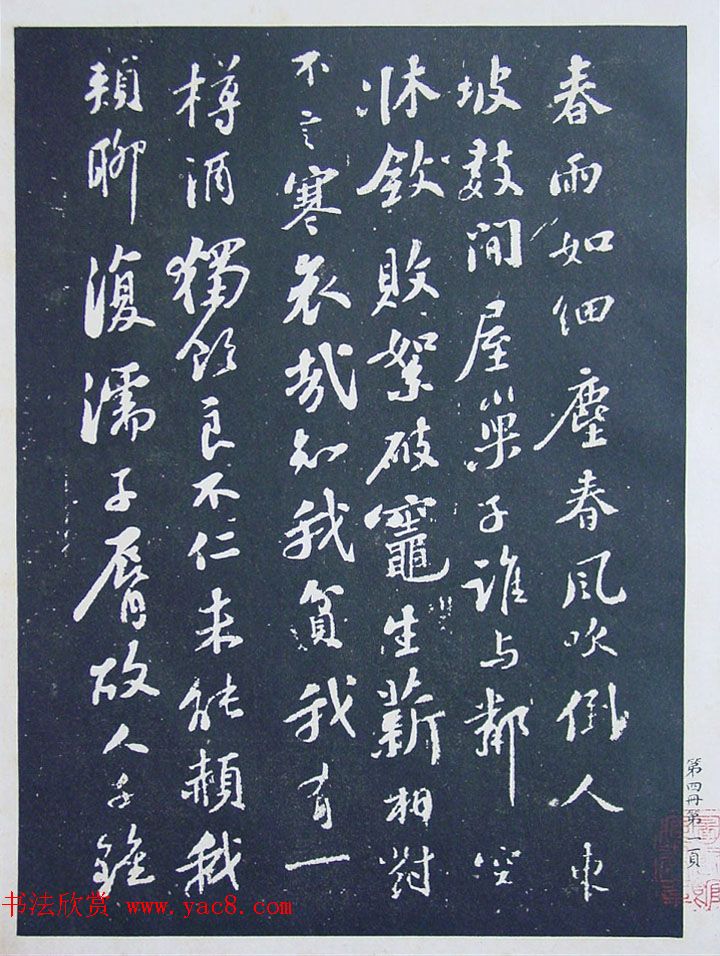 春雨如細塵春風吹倒人東
坡數間屋巢子誰与鄰空
牀斂敗絮破竈生薪相對
不言寒哀哉知我貧我有一
樽酒獨飲良不仁未能赬我
頰聊復濡子脣故人千鍾
第四冊第一頁
书法欣赏 www.yac8.com